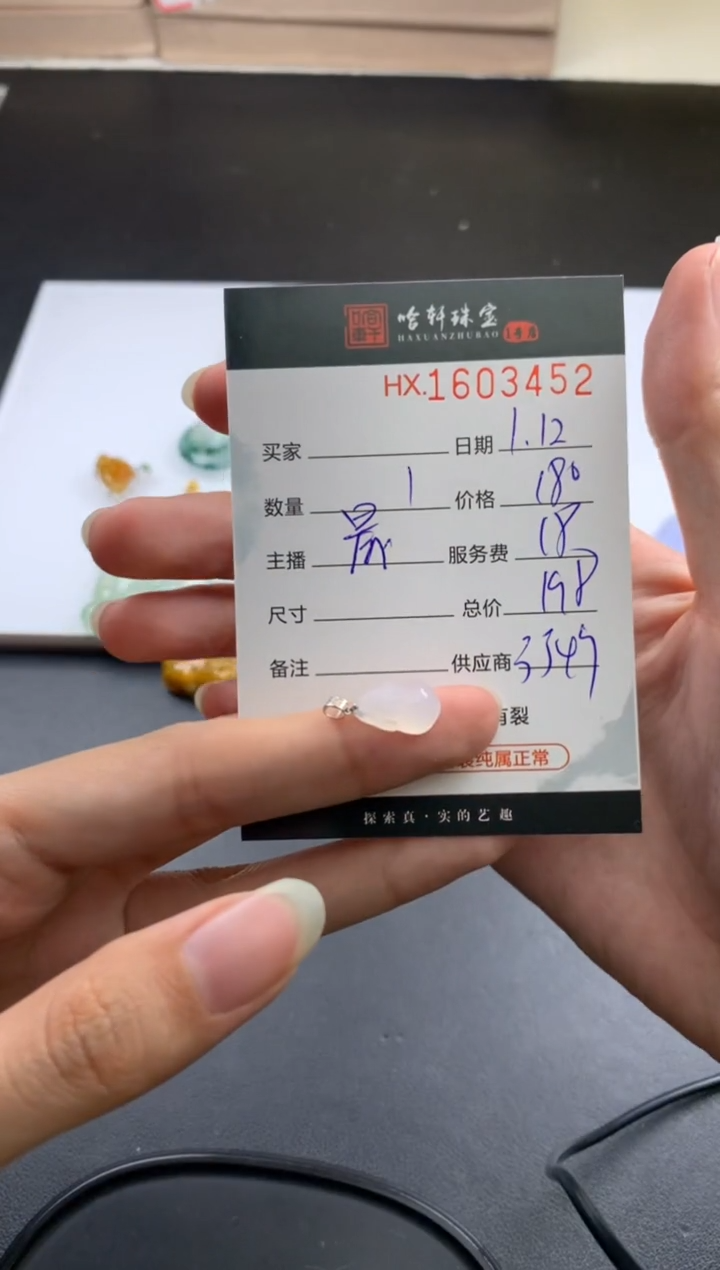 哈轩珠宝
HAXUANZHUBAO 1号店
HX.1603452
买家 日期 1.12
数量 1 价格 180
主播 服务费 18
尺寸 总价 198
备注 供应商
有裂
纯属正常
探索真·实的艺趣